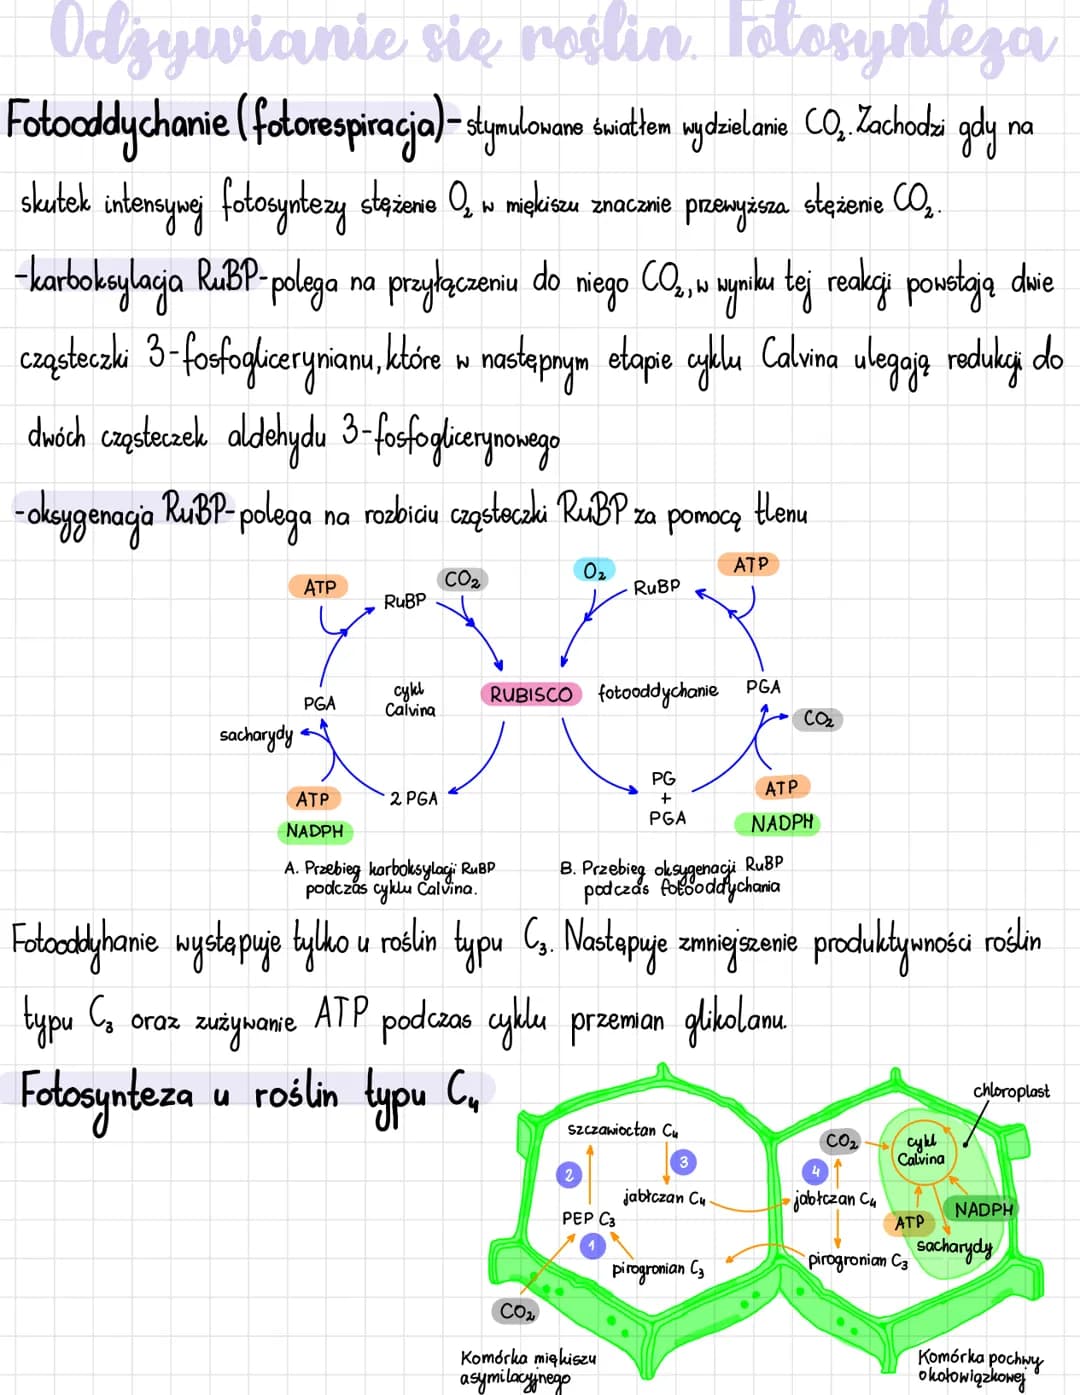 Odżywianie się roślin. Fotosynteza
Fotooddychanie (fotorespiracja)- stymulowane światłem wydzielanie CO₂. Zachodzi gdy na
skutek intensywej fotosyntezy stężenie O₂ w miękiszu znacznie przewyższa stężenie CO₂.
-karboksylacja RuBP-polega na przyłączeniu do niego CO₂, w wyniku tej reakcji powstają dwie
cząsteczki 3-fosfoglicerynianu, które w następnym etapie cyklu Calvina ulegają redukcji do
dwóch cząsteczek aldehydu 3-fosfoglicerynowego
-oksygenacja RuBP-polega na rozbiciu cząsteczki RuBP za pomocą tlenu
ATP
RuBP
CO₂
PGA
cykl
Calvina
sacharydy
ATP
NADPH
2 PGA
RUBISCO
O₂
RuBP
ATP
fotooddychanie
PGA
CO₂
PG
+
PGA
ATP
NADPH
A. Przebieg karboksylacji RuBP
podczas cyklu Calvina.
B. Przebieg oksygenacji RuBP
podczas fotooddychania
Fotooddyhanie występuje tylko u roślin typu C₃. Następuje zmniejszenie produktywności roślin
typu C₃ oraz zużywanie ATP podczas cyklu przemian glikolanu.
Fotosynteza u roślin typu C₄
szczawioctan C₄
2
3
jabłczan C₄
PEP C₃
1
pirogronian C₃
CO₂
Komórka miękiszu
asymilacyjnego
chloroplast
CO₂
cykl
Calvina
4
jabłczan C₄
NADPH
ATP
sacharydy
pirogronian C₃
Komórka pochwy
okołowiązkowej